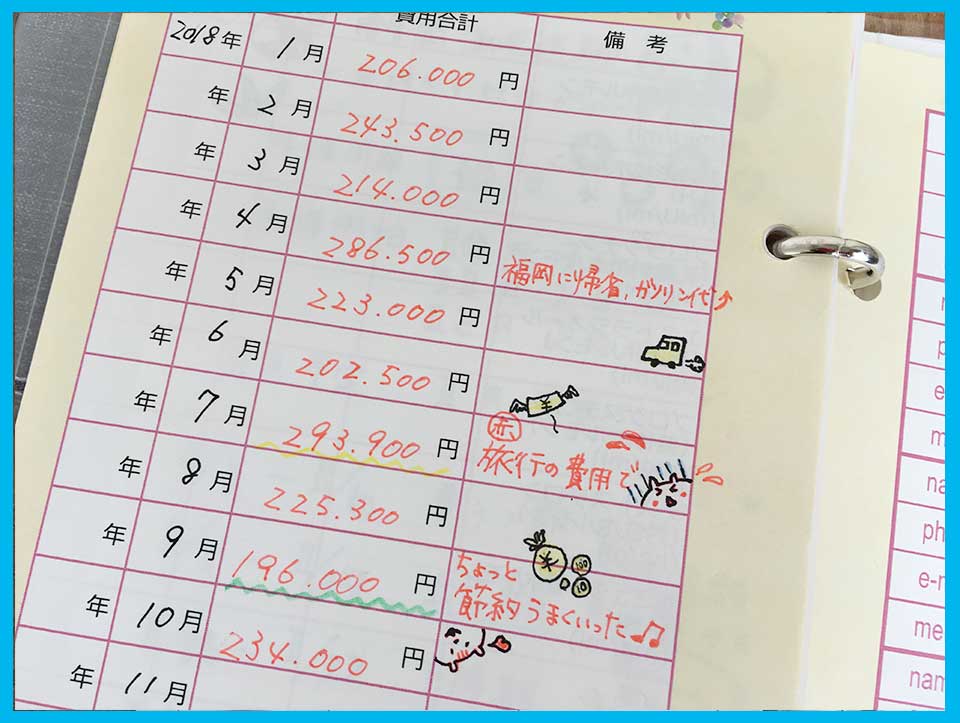 費用合計 備 考
2018年 1月 206.000 円
年 2月 243.500 円
年 3月 214.000 円
年 4月 286.500 円 福岡に帰省,ガソリン代↗
年 5月 223.000 円
年 6月 202.500 円
¥
年 7月 293.900 円 赤
旅行の費用で
年 8月 225.300 円
年 9月 196.000 円 ちょっと
節約うまくいった♫
¥ 100 10
年 10月 234.000 円
年 11月